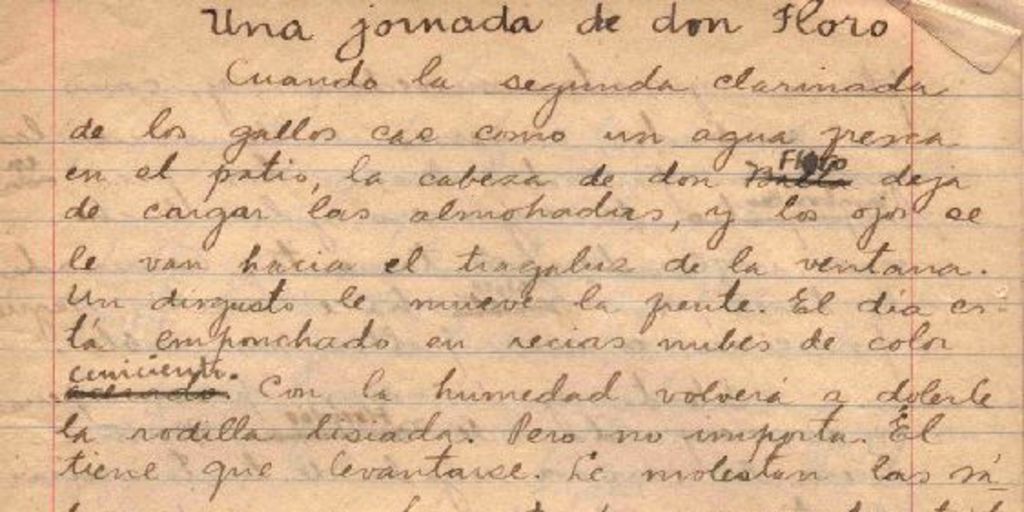 Una jornada de don Floro
Cuando la segunda clarinada
de los gallos cae como un agua fresca
en el patio, la cabeza de don Floro deja
de cargar las almohadas, y los ojos se
le van hacia el tragaluz de la ventana.
Un disgusto le mueve la frente. El día es-
tá emponchado en recias nubes de color
ceniciento.
acerado. Con la humedad volverá a dolerle
la rodilla lisiada. Pero no importa. Él
tiene que levantarse. Le molestan las sá-